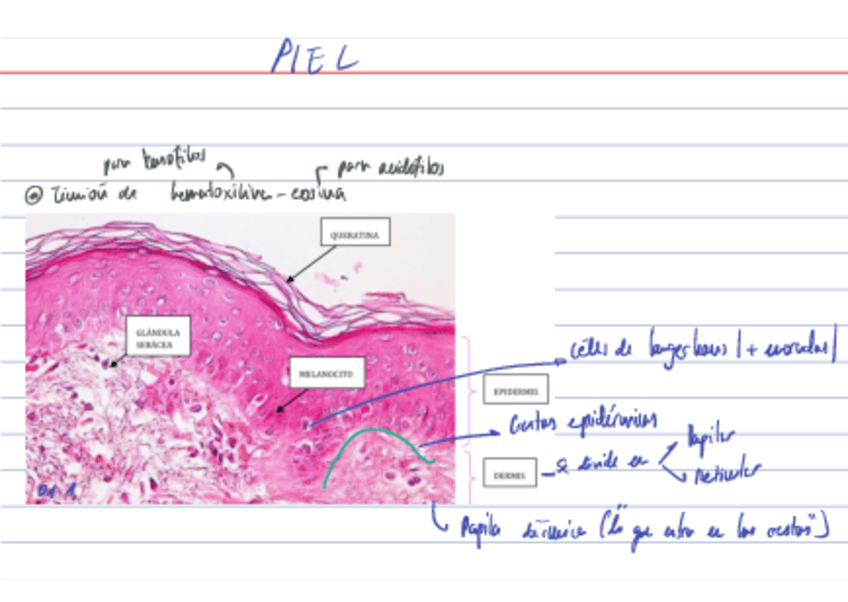 PIEL
para basófilos
para acidófilos
Tinción de hematoxilina-eosina
QUERATINA
GLÁNDULA
SEBÁCEA
MELANOCITO
céls de langerhans (+ moradas)
EPIDERMIS
Crestas epidérmicas
DERMIS
Se divide en
Papilar
reticular
Papila dérmica ("lo que entra en las crestas")